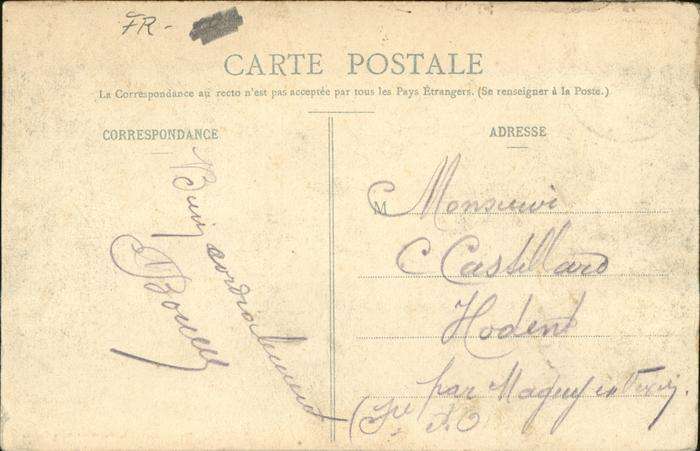 FR -
CARTE POSTALE
La Correspondance au recto n'est pas acceptée par tous les Pays Étrangers. (Se renseigner à la Poste.)
CORRESPONDANCE
Bien cordialement
ADRESSE
M Monsieur
C Castillard
Hodent
par Magny en Vexin
S. O